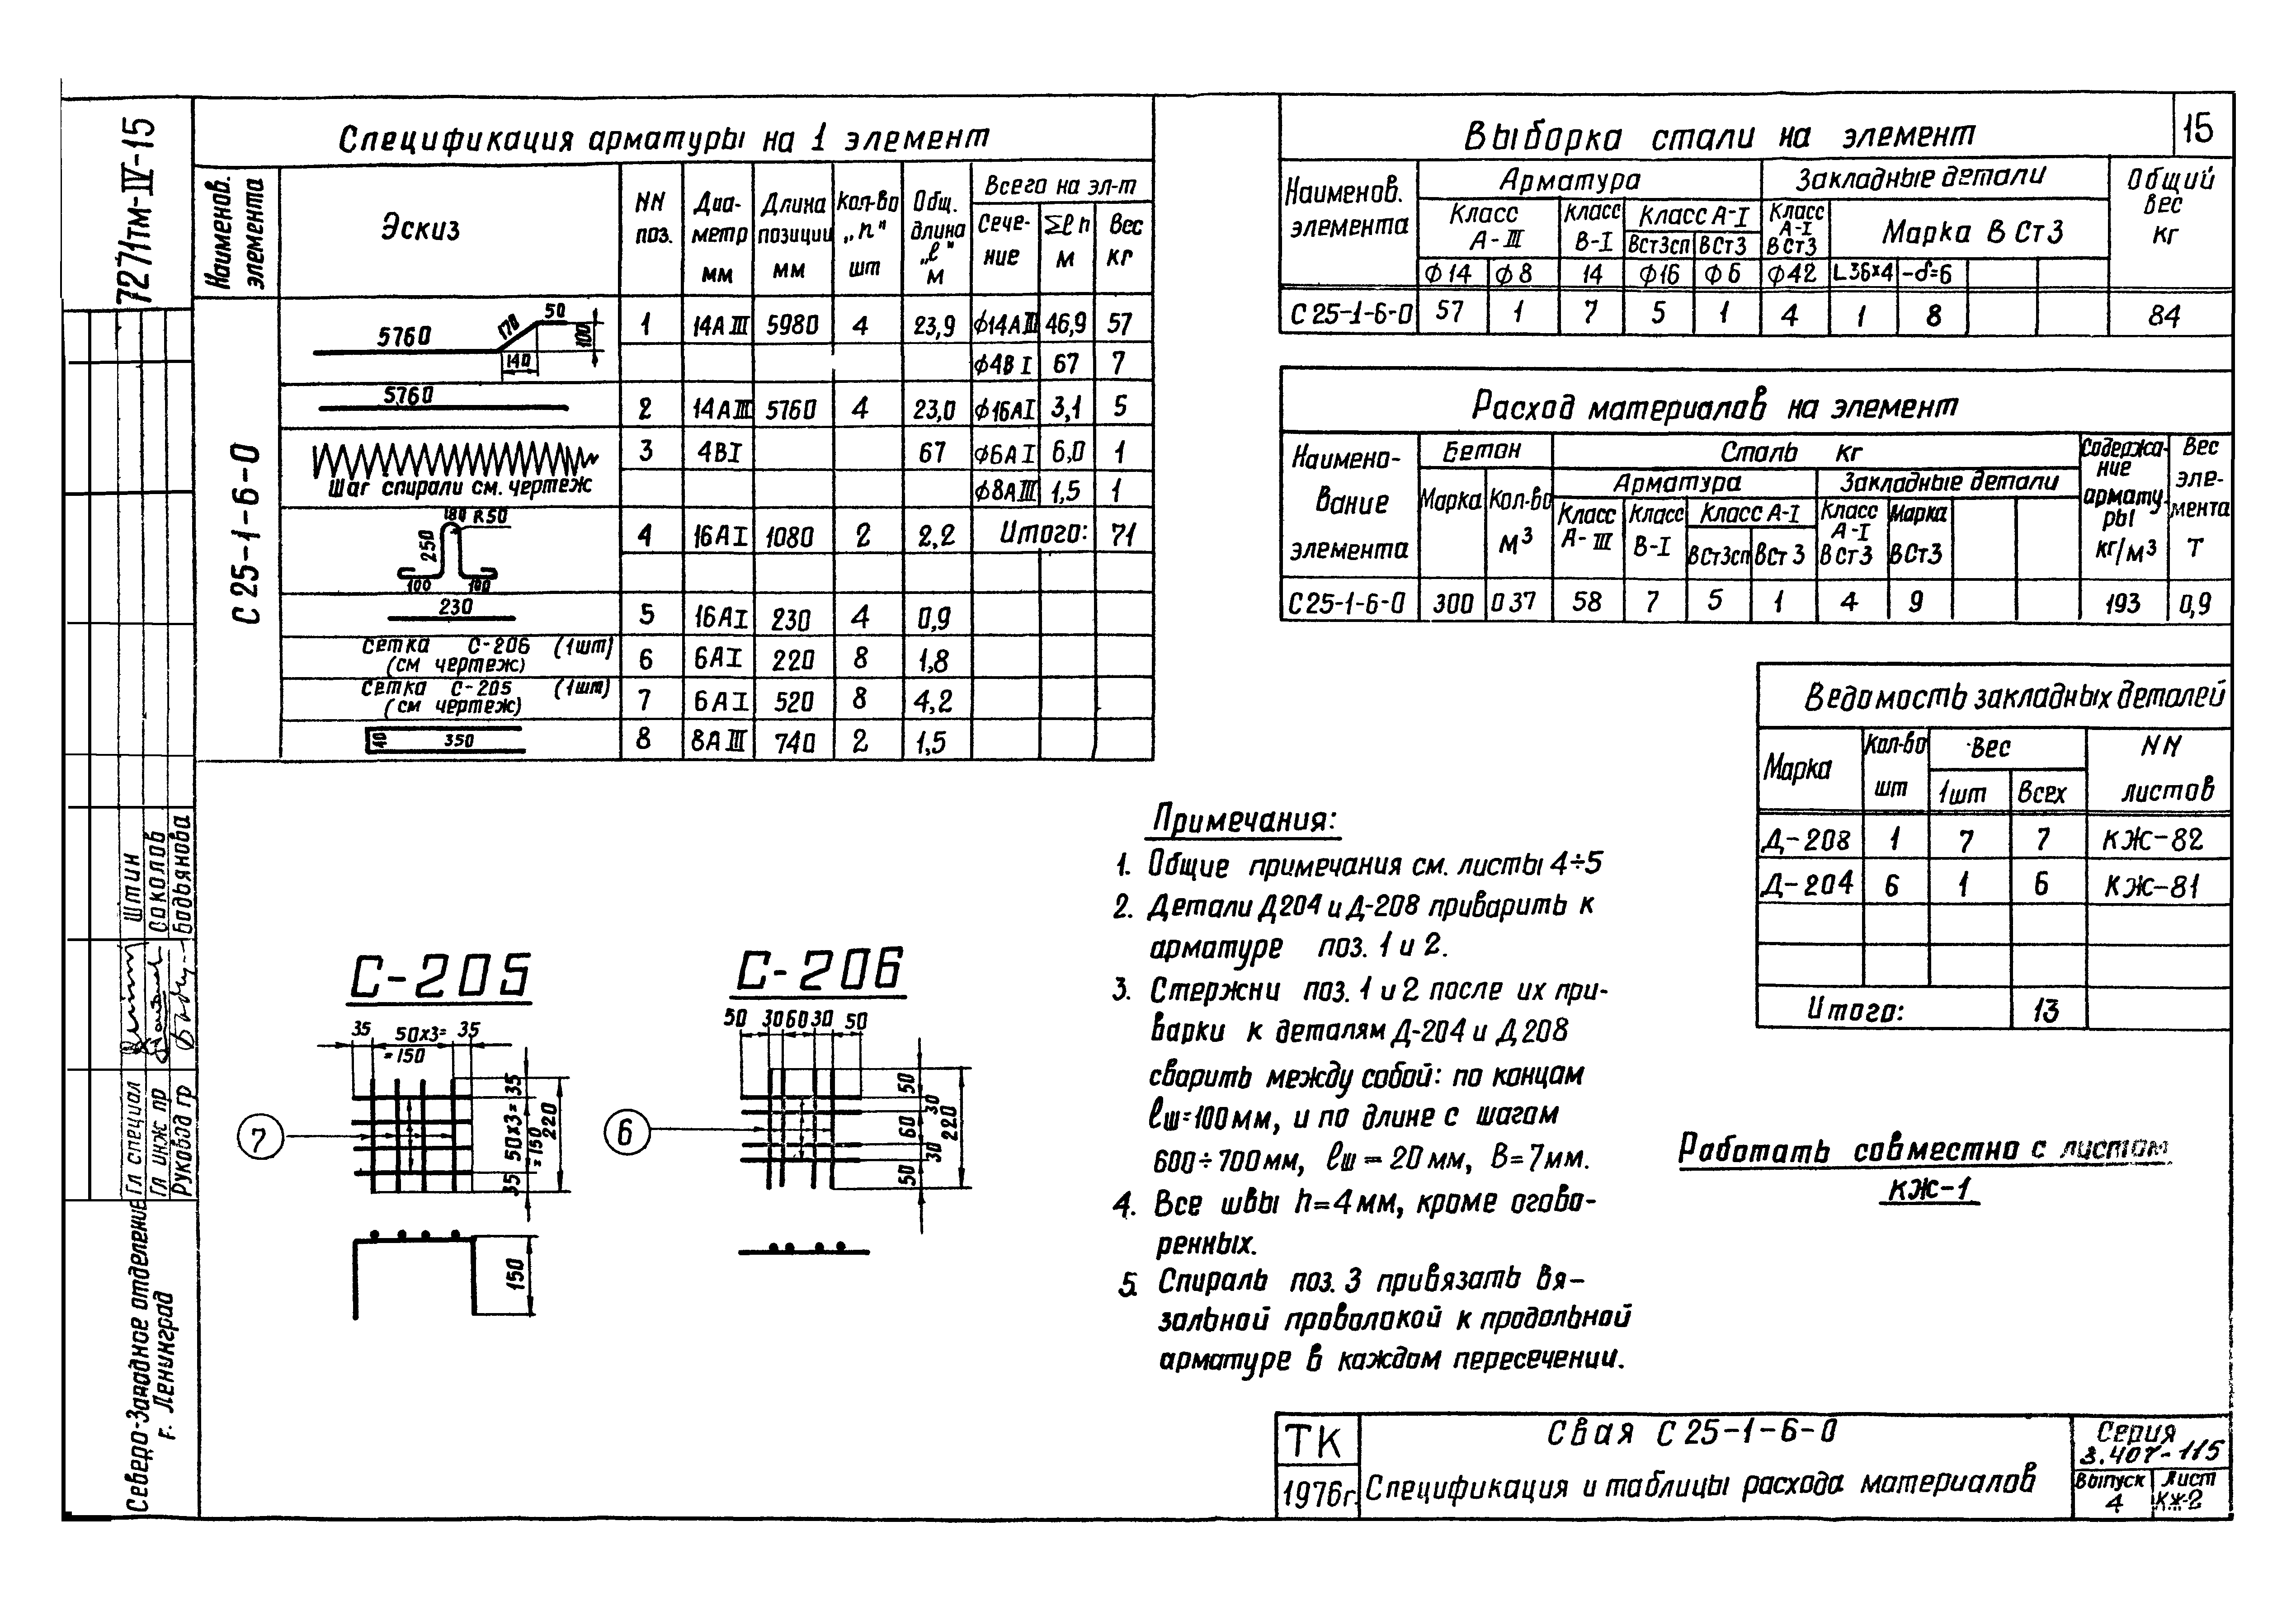 7271тм-IV-15
15
Спецификация арматуры на 1 элемент
Наименов. элемента | Эскиз | NN поз. | Диаметр мм | Длина позиции мм | Кол-во „n" шт | Общ. длина „ℓ" м | Всего на эл-т
Сечение | Σℓn м | Вес кг
С 25-1-6-0
5760 170 50 140 100 | 1 | 14АIII | 5980 | 4 | 23,9 | ф14АIII | 46,9 | 57
ф4ВI | 67 | 7
5760 | 2 | 14АIII | 5760 | 4 | 23,0 | ф16АI | 3,1 | 5
Шаг спирали см. чертеж | 3 | 4ВI | 67 | ф6АI | 6,0 | 1
ф8АIII | 1,5 | 1
180 R50 250 100 100 | 4 | 16АI | 1080 | 2 | 2,2 | Итого: | 71
230 | 5 | 16АI | 230 | 4 | 0,9
сетка С-206 (1шт) (см чертеж) | 6 | 6АI | 220 | 8 | 1,8
сетка С-205 (1шт) (см чертеж) | 7 | 6АI | 520 | 8 | 4,2
40 350 | 8 | 8АIII | 740 | 2 | 1,5
Выборка стали на элемент
Наименов. элемента | Арматура | Закладные детали | Общий вес кг
Класс А-III | Класс В-I | Класс А-I | Класс А-I ВСт3 | Марка В Ст3
ВСт3сп | ВСт3
ф14 | ф8 | 14 | ф16 | ф6 | ф42 | L36×4 | -δ=6
С 25-1-6-0 | 57 | 1 | 7 | 5 | 1 | 4 | 1 | 8 | 84
Расход материалов на элемент
Наименование элемента | Бетон | Сталь кг | Содержание арматуры кг/м³ | Вес элемента Т
Марка | Кол-во м³ | Арматура | Закладные детали
Класс А-III | Класс В-I | Класс А-I | Класс А-I ВСт3 | Марка ВСт3
ВСт3сп | ВСт3
С25-1-6-0 | 300 | 0 37 | 58 | 7 | 5 | 1 | 4 | 9 | 193 | 0,9
Ведомость закладных деталей
Марка | Кол-во шт | Вес | NN листов
1шт | Всех
Д-208 | 1 | 7 | 7 | КЖ-82
Д-204 | 6 | 1 | 6 | КЖ-81
Итого: | 13
Примечания:
1. Общие примечания см. листы 4÷5
2. Детали Д204 и Д-208 приварить к
арматуре поз. 1 и 2.
3. Стержни поз. 1 и 2 после их при-
варки к деталям Д-204 и Д208
сварить между собой: по концам
ℓш=100мм, и по длине с шагом
600÷700мм, ℓш=20мм, В=7мм.
4. Все швы h=4мм, кроме огово-
ренных.
5. Спираль поз. 3 привязать вя-
зальной проволокой к продольной
арматуре в каждом пересечении.
Работать совместно с листом
КЖ-1
С-205
35 50х3= =150 35
7
35 50х3= =150 35 220
150
С-206
50 30 60 30 50
6
50 30 60 30 50 220
Гл специал Штин
Гл инж пр Соколов
Руковод гр Бодьянова
Северо-Западное отделение
г. Ленинград
ТК
1976г.
Свая С 25-1-6-0
Спецификация и таблицы расхода материалов
Серия
3.407-115
Выпуск 4
Лист КЖ-2